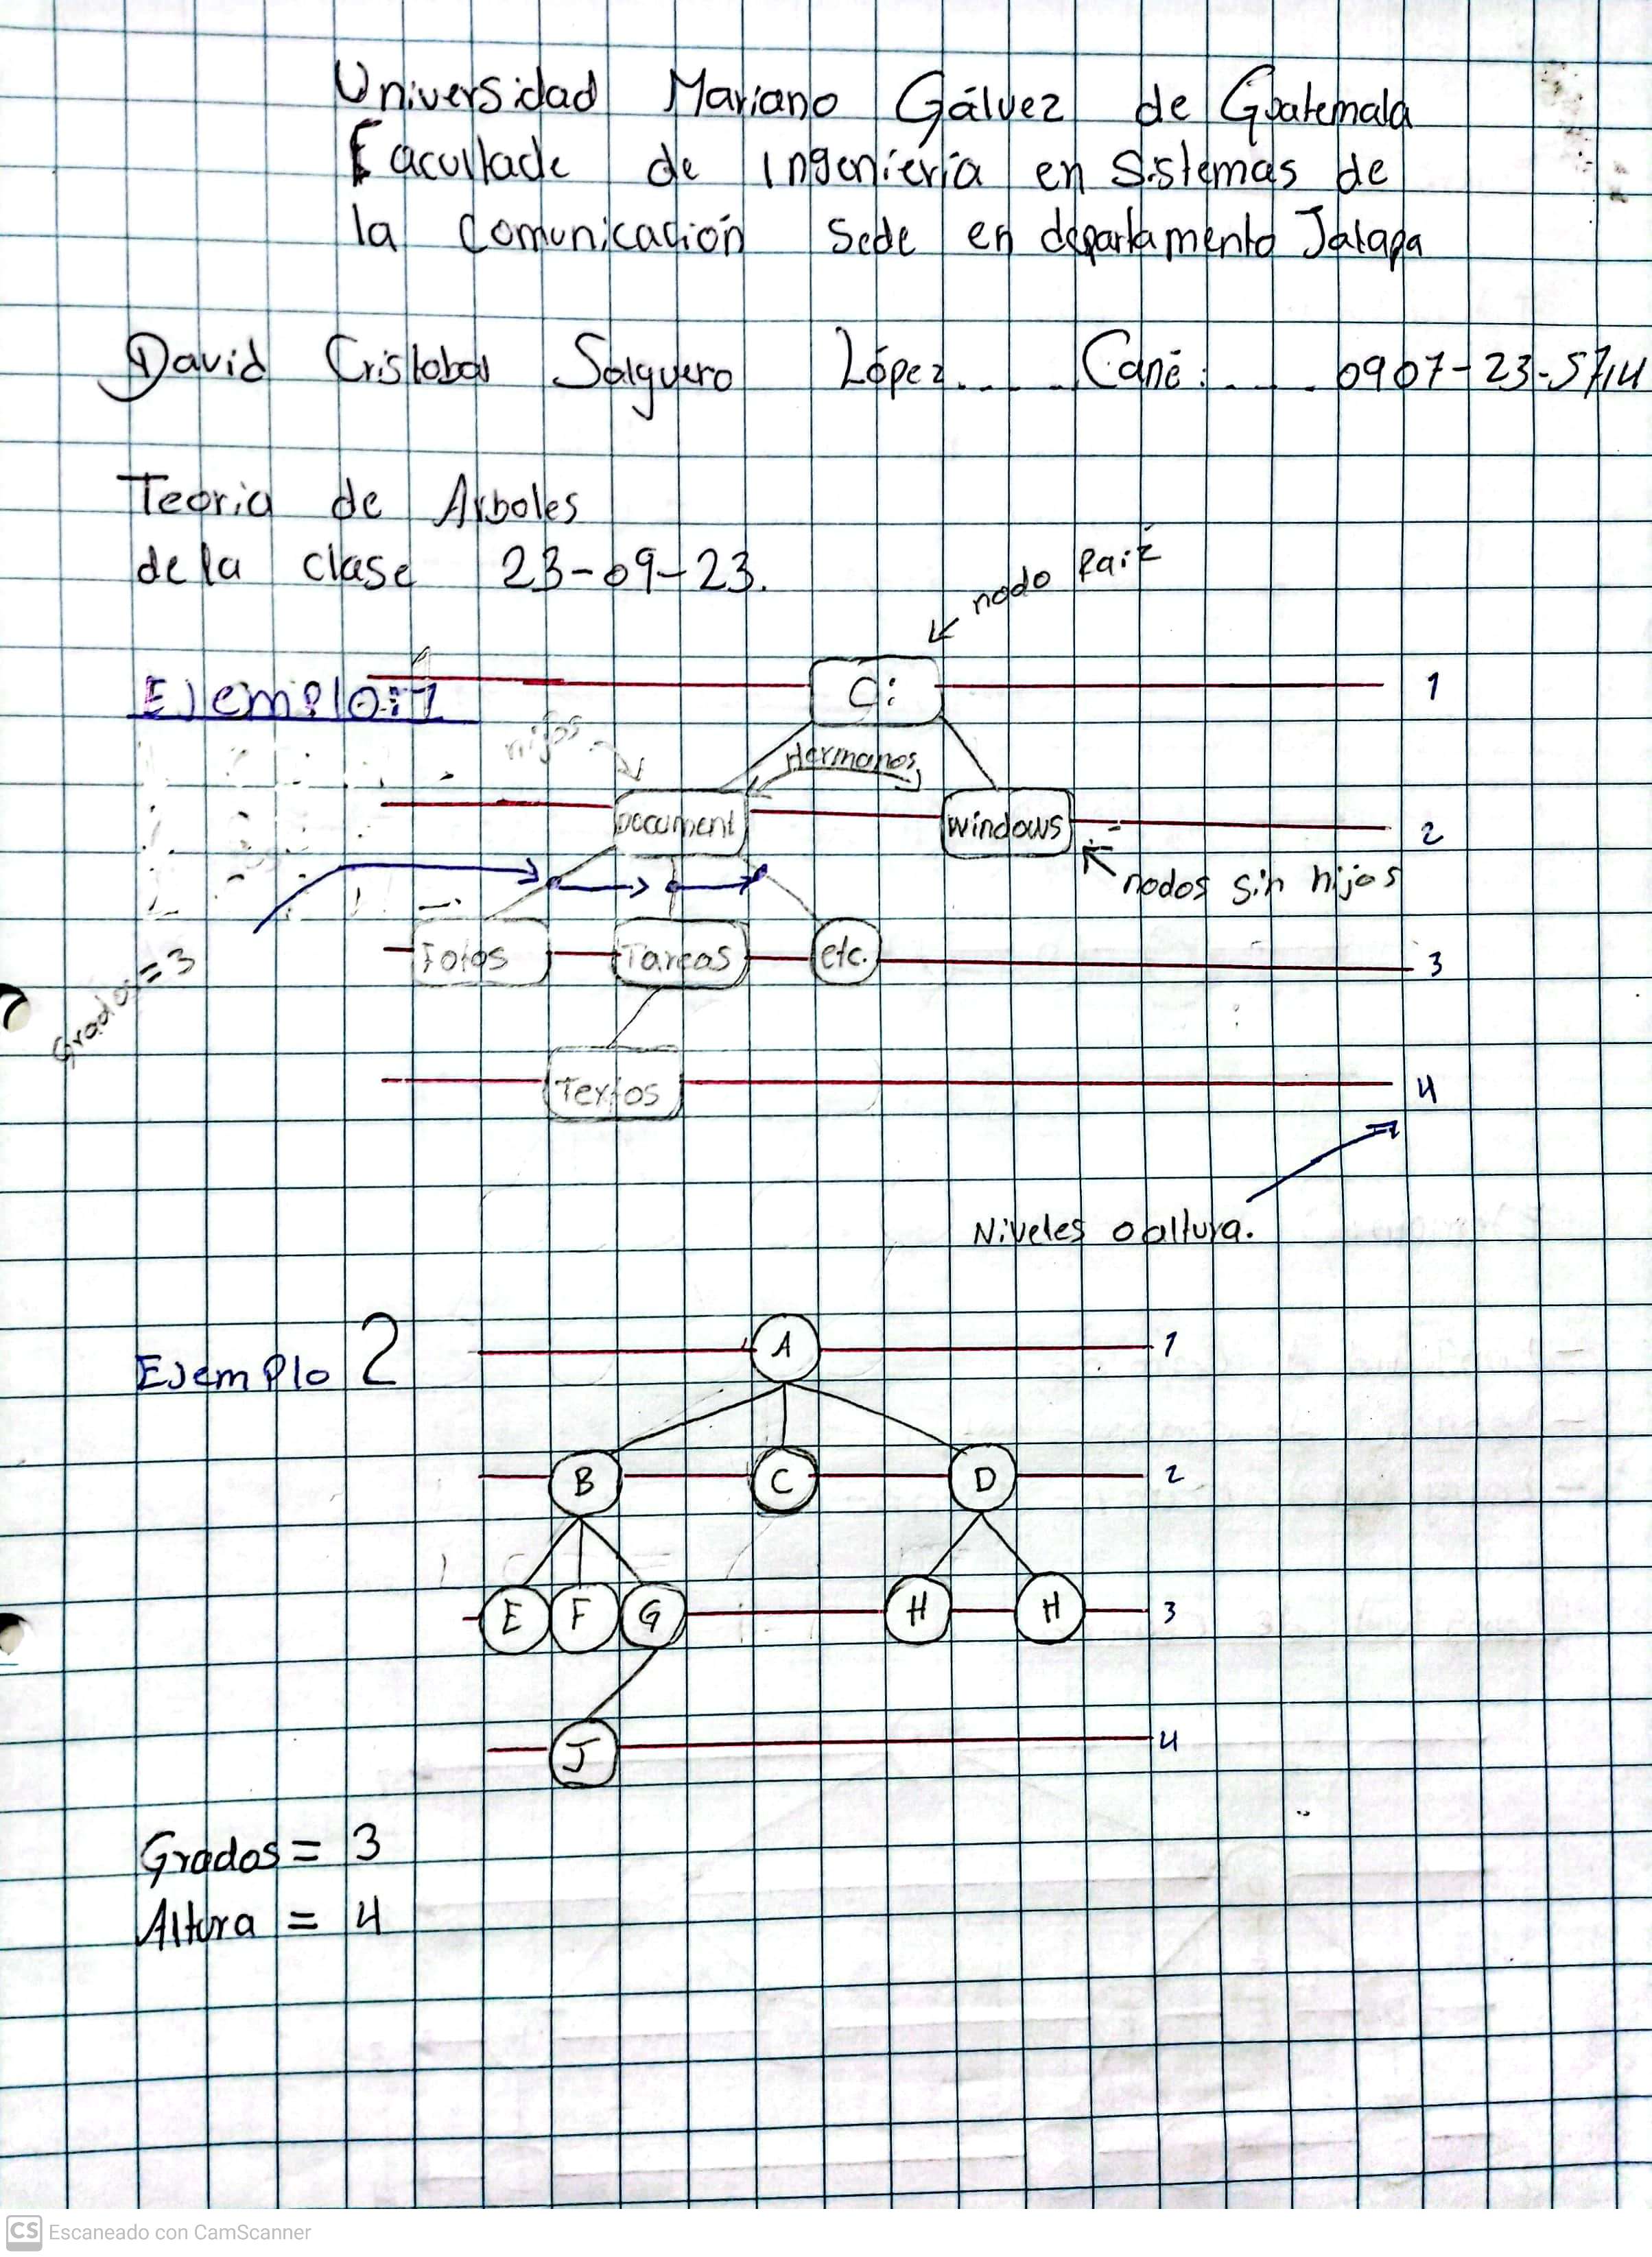 Universidad Mariano Gálvez de Guatemala
Facultade de Ingenieria en Sistemas de
la Comunicación Sede en departamento Jalapa
David Cristobal Salguero López..... Cané:..... 0907-23-5714
Teoria de Arboles
de la clase 23-09-23.
nodo Raiz
Ejemplo:1
C:
1
hijos
Hermanos
Document
windows
2
nodos sin hijos
Grados=3
Fotos
Tareas
etc.
3
Textos
4
Niveles o altura.
Ejemplo 2
A
1
B
C
D
2
E
F
G
H
H
3
J
4
Grados = 3
Altura = 4
CS Escaneado con CamScanner